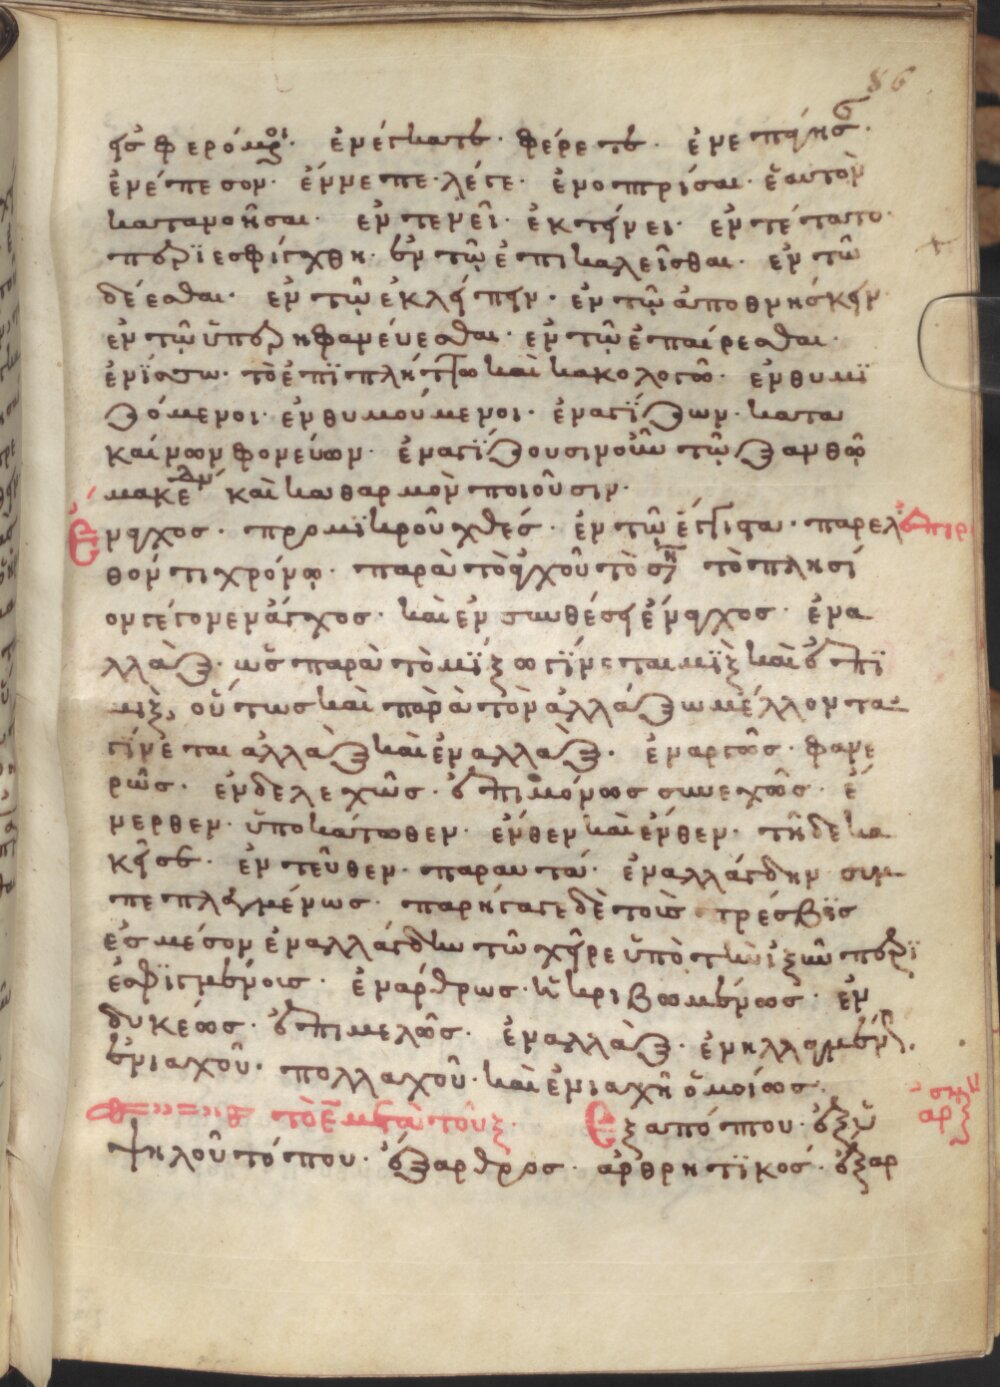 86
εἰσφερόμενοι. ἐνέγκατε. φέρετε. ἐνεπείρης.
ἐνέπεσον. ἐμμεπελέγε. ἐνοπτρίσαι. ἑαυτὸν
κατανοῆσαι. ἐντενεῖ. ἐκτείνει. ἐντέτατο.
περιεσφίγχθη. ἐν τῷ ἐπικαλεῖσθαι. ἐν τῶ
δέεσθαι. ἐν τῷ ἐκλείπειν. ἐν τῷ ἀποθνήσκειν
ἐν τῷ ὑπερηφανεύεσθαι. ἐν τῷ ἐπαίρεσθαι.
ἐνίσσω. τὸ ἐπϊπλήττω καὶ κακολογῶ. ἐνθυμϊ
ζόμενοι. ἐνθυμούμενοι. ἐναγΐζων. κατα
καίνων φονεύων. ἐναγΐζουσι νοῦν τῷ ξανθῷ
καὶ καθαρμὸν ποιοῦσιν.
Ἔναχος. προμϊκροῦ χθές. ἐν τῶ ἔγγιστα. παρελ
θόντι χρόνῳ. παρὰ τὸ ἄχου τὸ τὸ πλησί
ον γέγονεν ἄγχος. καὶ ἐν συνθέσει ἔναχος. ἐνα
λλὰξ. ὡς παρὰ τὸ μΐξω γΐνεται μῒξ καὶ ἐπϊ
μῒξ, οὕτως καὶ παρὰ τὸν ἀλλάξω μέλλοντα
γΐνεται ἀλλὰξ καὶ ἐναλλὰξ. ἐναργῶς. φανε
ρῶς. ἐνδελεχῶς. ἐπιμόνως συνεχῶς. ἐ
νερθεν. ὑποκάτωθεν. ἔνθεν καὶ ἔνθεν. τῆδε κα
κεῖσε. ἐντεῦθεν. παραυτά. ἐναλλάγδην συμ
πεπλεγμένως. παρήγαγε δὲ τοὺς τρέσβϊς
ἐς μέσον ἐναλλάγδην τῶ χεῖρε ὑπὸ τὴν ἰξὺν περϊ
ἐσφϊγμένοις. ἐνάρθρως. ἠκριβωμένως. ἐν
δυκέως. ἐπιμελῶς. ἐναλλὰξ. ἐνηλλαγμένη.
ἐνιαχοῦ. πολλαχοῦ. καὶ ἐνιαχῆ ὁμοίως.
τὸ ε μετὰ τοῦ ξ. Ἐξαπόπου. ἐξ ὑ
ψηλοῦ τόπου. ἔξαρθρος. ἀρθρητϊκός. ἐξαρ